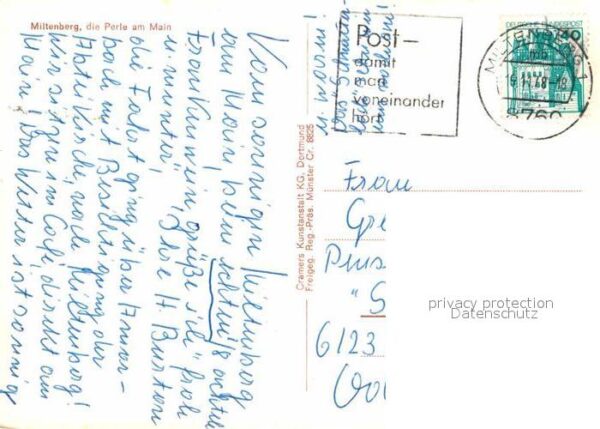 Miltenberg, die Perle am Main
Vom sonnigen Miltenberg
am Main, beim 8 achtel
Frankenwein grüße ich "froh
u. munter", H. Burton
die Fahrt ging über Amor-
bach mit Besichtigung der
Abteikirche, nach Miltenberg!
Wir sitzen im Café direkt am
Main! Das Wetter ist sonnig
u. warm!
Das
Cramers Kunstanstalt KG, Dortmund
Freigeg. Reg.-Präs. Münster Cr. 8825
Post-
damit
man
voneinander
hört
DEUTSCHE BUNDESPOST
40
MILTENBERG 1
8760
Frau
Ge
Pens
"S
6123
privacy protection
Datenschutz